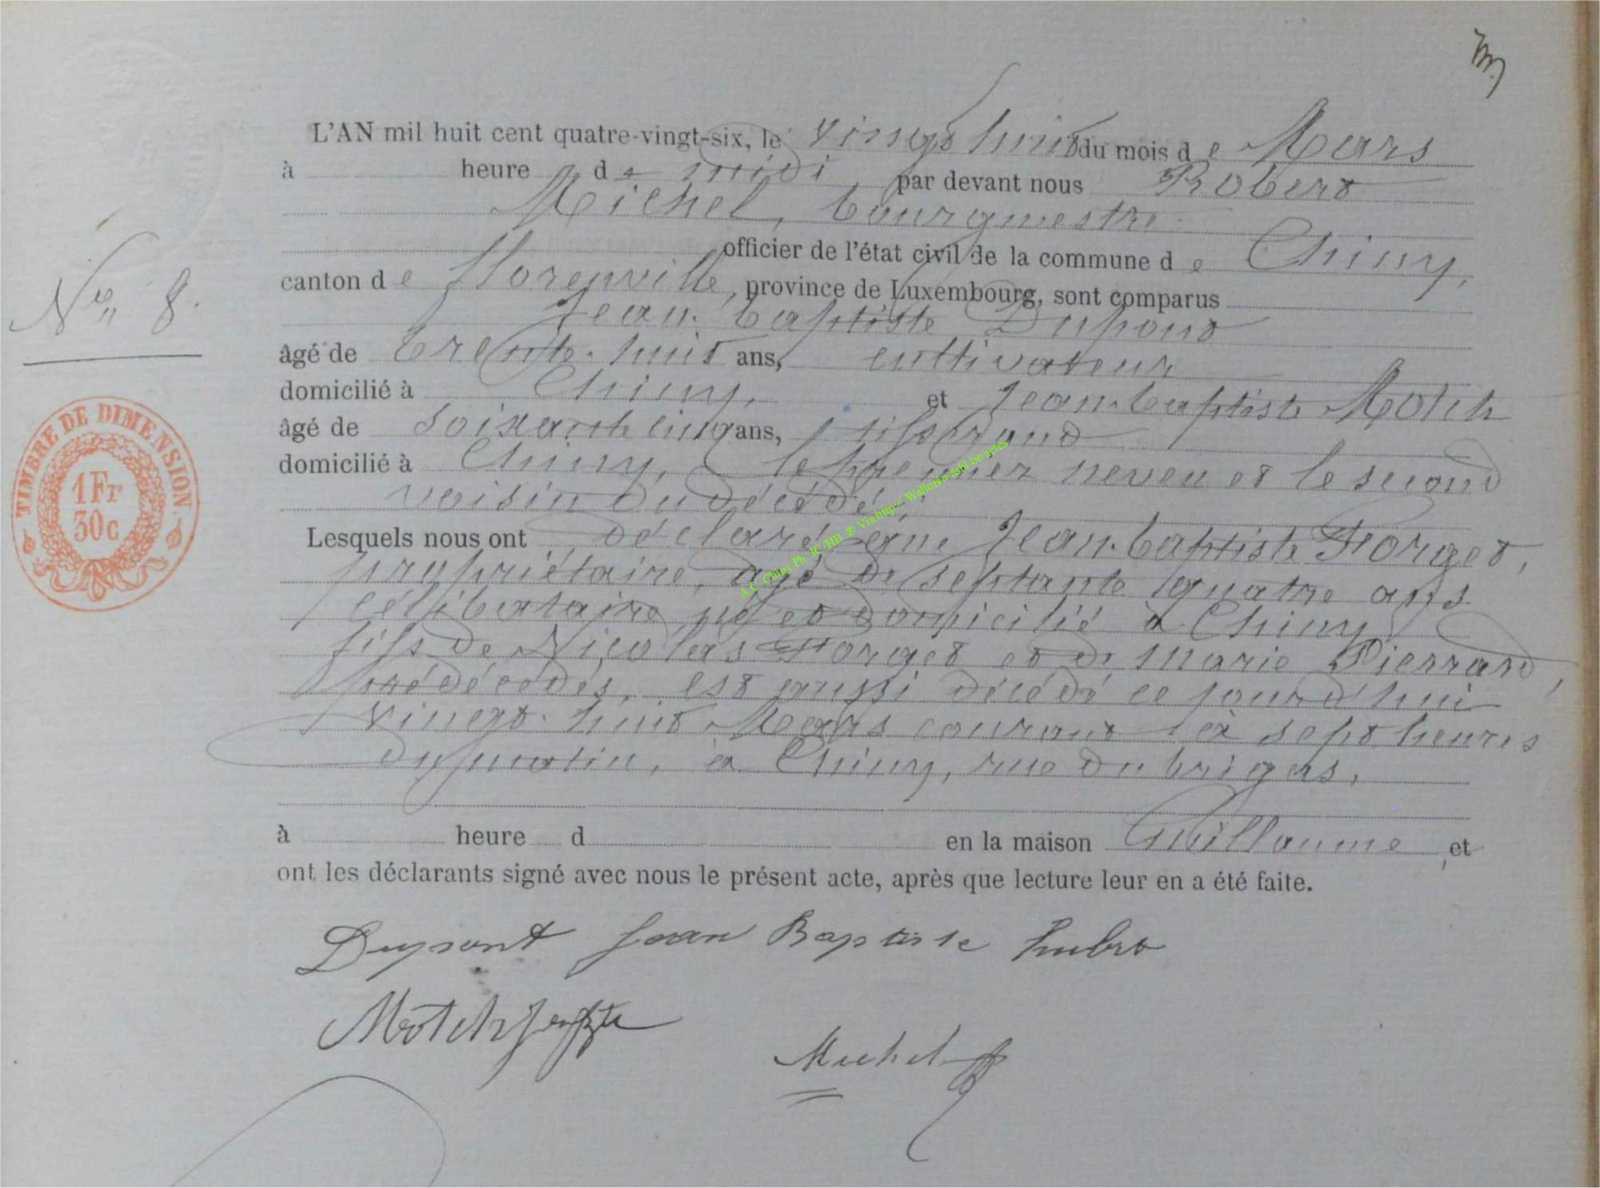 L'AN mil huit cent quatre-vingt-six, le vingt huit du mois de Mars
à heure de midi par devant nous Robert
Michel, bourgmestre
officier de l'état civil de la commune de Chiny,
canton de florenville, province de Luxembourg, sont comparus
Jean-baptiste Dupont
N° 8.
âgé de trente-huit ans, cultivateur
domicilié à Chiny, et Jean-baptiste Motch
âgé de soixante cinq ans, tisserand
domicilié à Chiny, le premier neveu et le second
voisin du décédé,
Lesquels nous ont déclaré que Jean-baptiste Forget,
propriétaire, agé de septante quatre ans
célibataire, né et domicilié à Chiny
fils de Nicolas Forget et de Marie Pierrard,
prédécédés, est aussi décédé ce jourd'hui
vingt-huit Mars courant à sept heures
du matin, à Chiny, rue du brigas,
à heure d en la maison Guillaume, et
ont les déclarants signé avec nous le présent acte, après que lecture leur en a été faite.
Dupont Jean Baptiste hubert
Motch
Michel
TIMBRE DE DIMENSION
1 Fr
30c